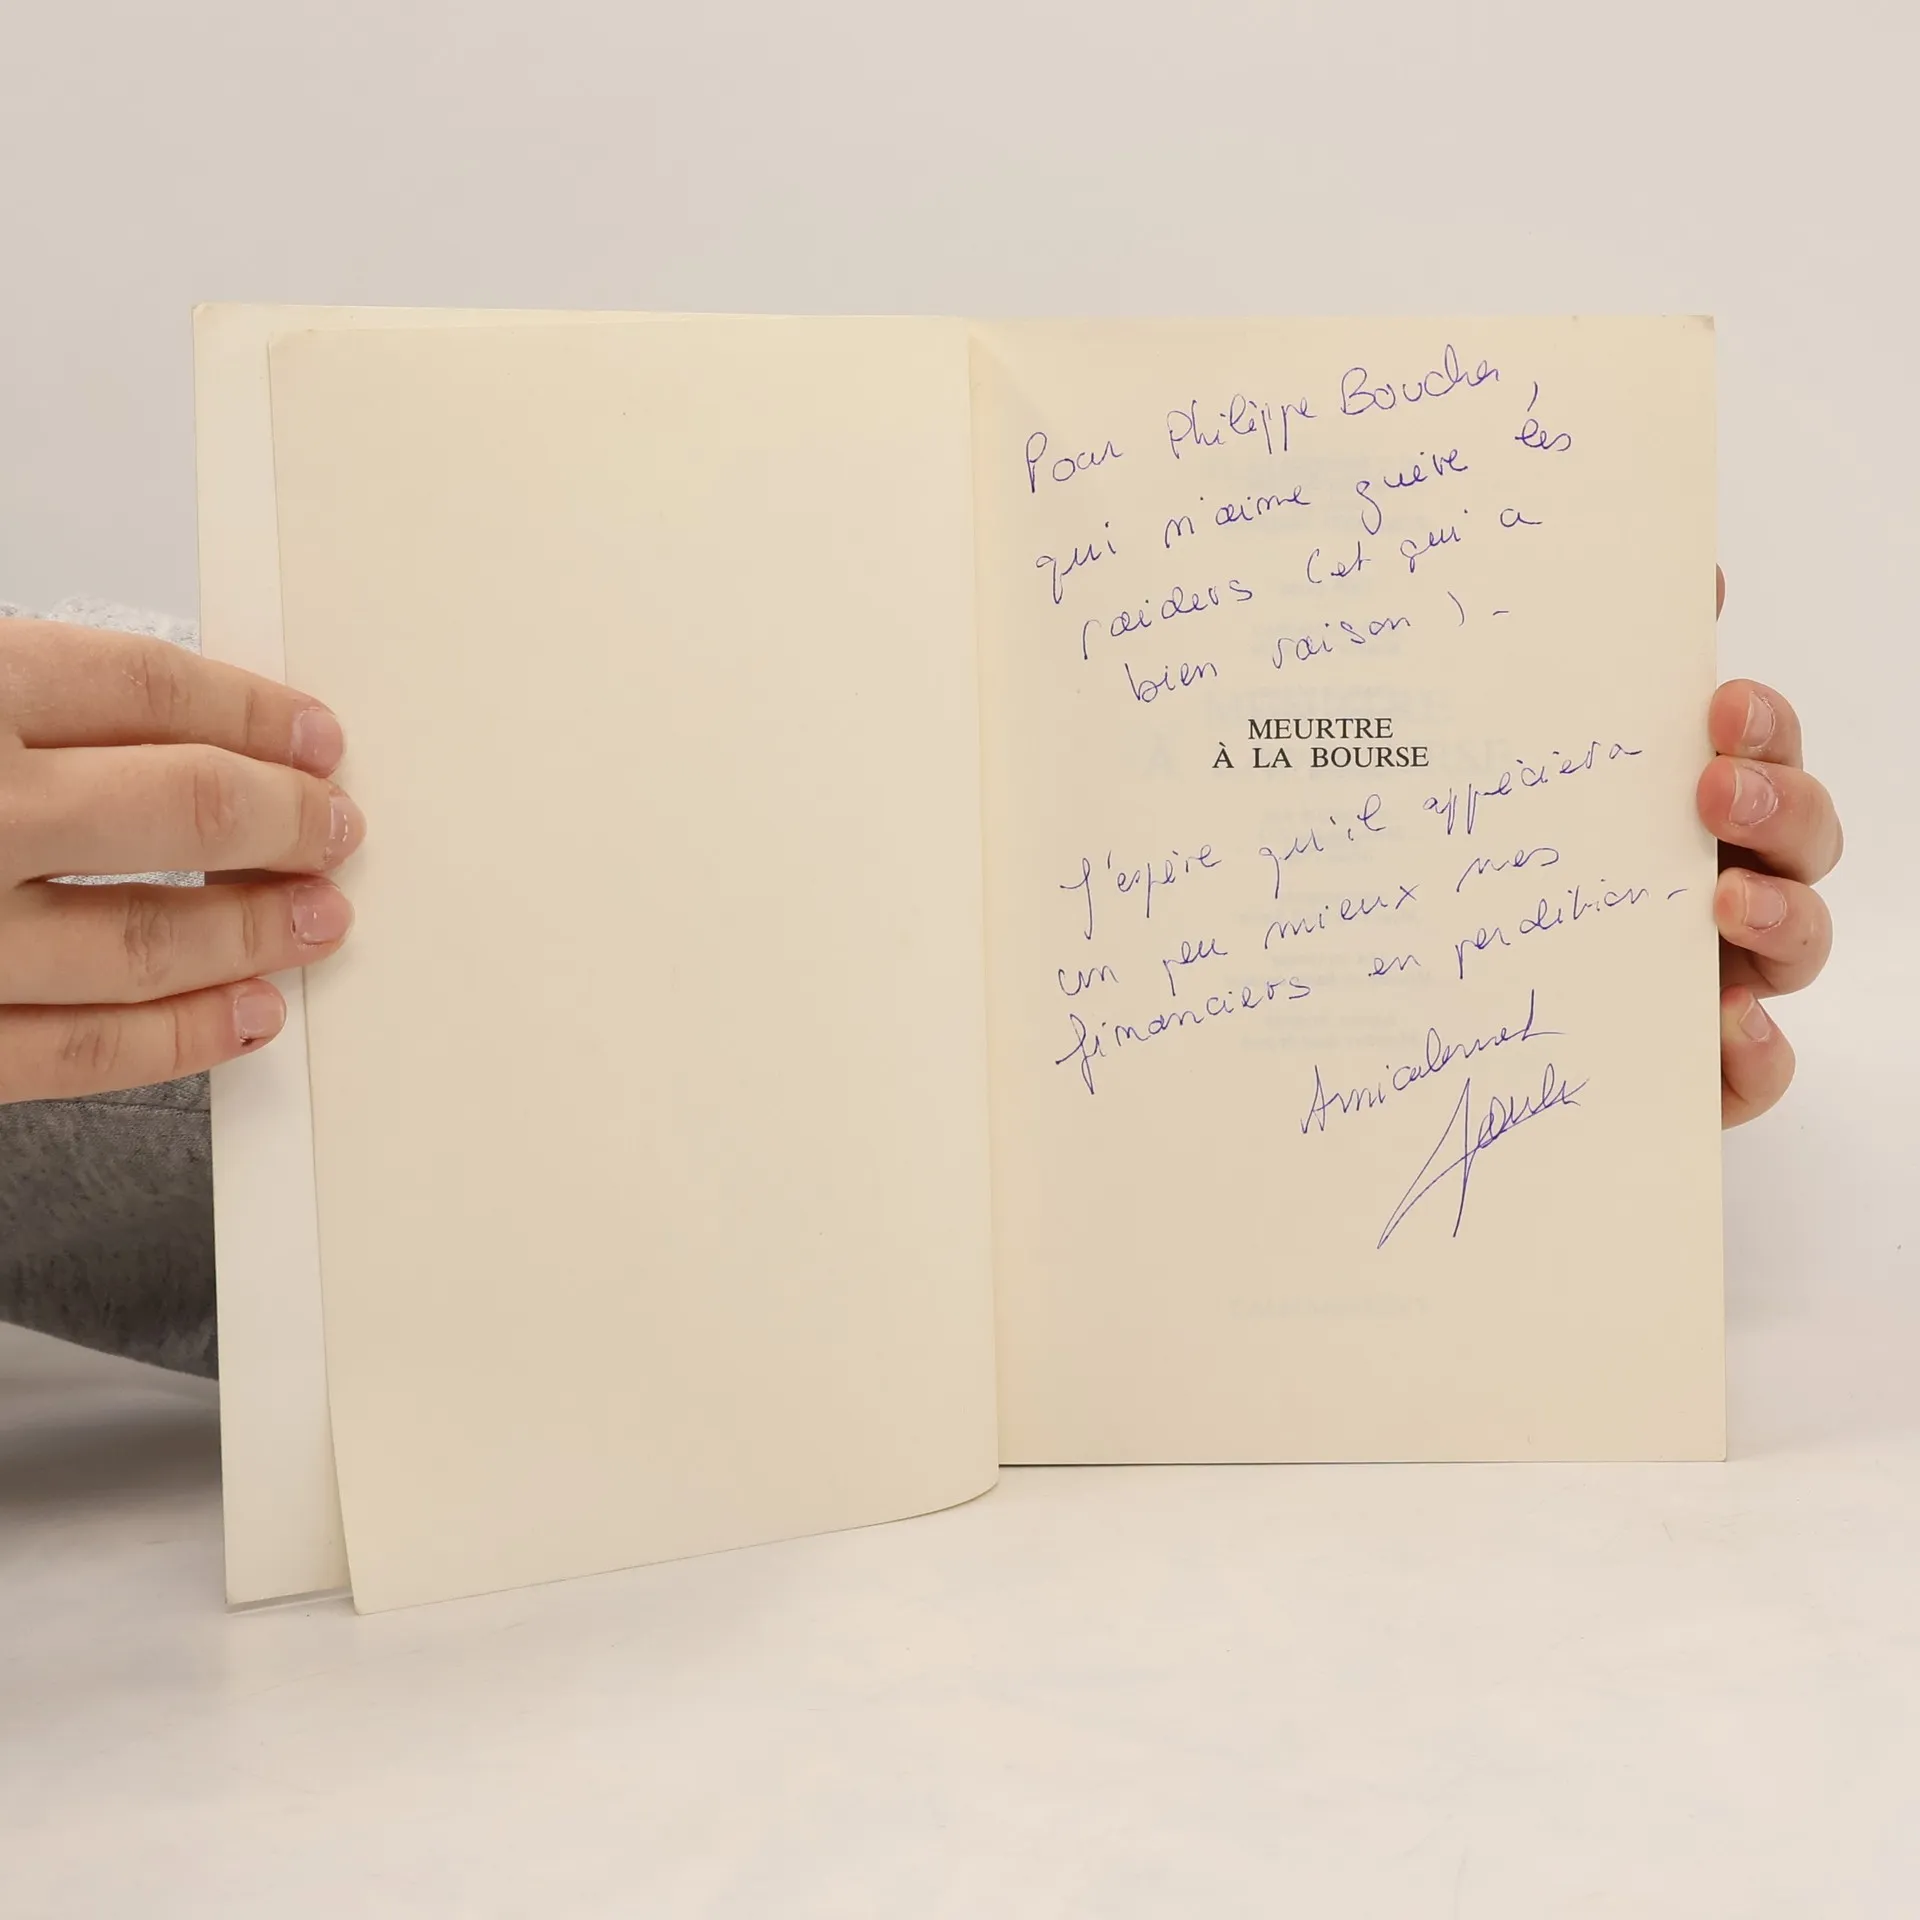 Pour Philippe Boucher,
qui n'aime guère les
raiders (et qui a
bien raison) -
MEURTRE
À LA BOURSE
J'espère qu'il appréciera
un peu mieux mes
financiers en perdition -
Amicalement